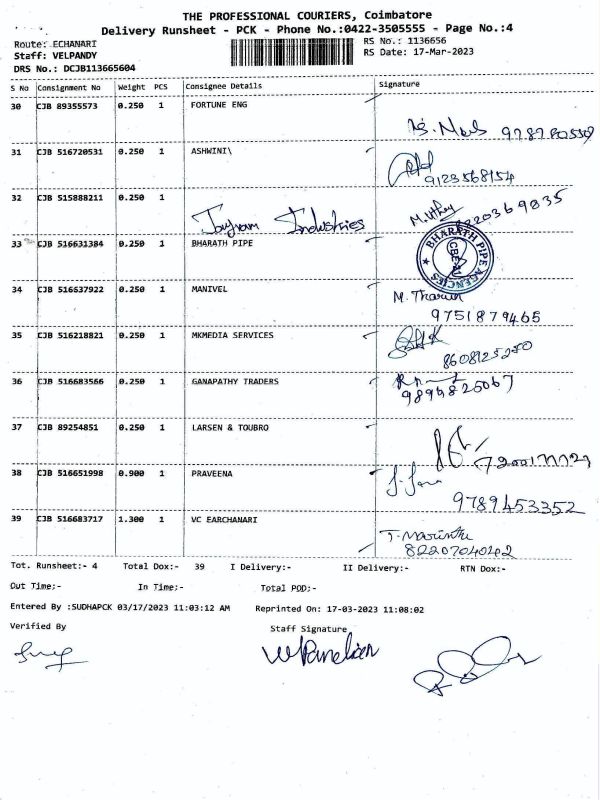 THE PROFESSIONAL COURIERS, Coimbatore
Delivery Runsheet - PCK - Phone No.:0422-3505555 - Page No.:4
Route: ECHANARI
RS No.: 1136656
Staff: VELPANDY
RS Date: 17-Mar-2023
DRS No.: DCJB113665604
S No Consignment No Weight PCS Consignee Details Signature
30 CJB 89355573 0.250 1 FORTUNE ENG
31 CJB 516720531 0.250 1 ASHWINI\
9123568154
32 CJB 515888211 0.250 1
Industries
33 CJB 516631384 0.250 1 BHARATH PIPE
BHARATH PIPE AGENCIES
34 CJB 516637922 0.250 1 MANIVEL
9751879465
35 CJB 516218821 0.250 1 MKMEDIA SERVICES
8608125250
36 CJB 516683566 0.250 1 GANAPATHY TRADERS
37 CJB 89254851 0.250 1 LARSEN & TOUBRO
38 CJB 516651998 0.900 1 PRAVEENA
9789453352
39 CJB 516683717 1.300 1 VC EARCHANARI
8220704042
Tot. Runsheet:- 4 Total Dox:- 39 I Delivery:- II Delivery:- RTN Dox:-
Out Time;- In Time;- Total POD;-
Entered By :SUDHAPCK 03/17/2023 11:03:12 AM Reprinted On: 17-03-2023 11:08:02
Verified By Staff Signature